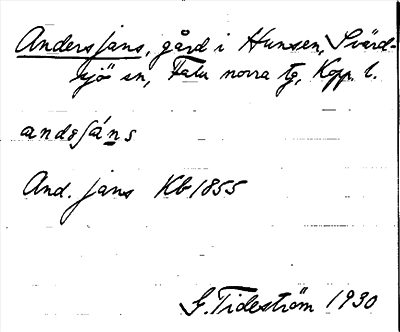 Andersjans, gård i Hunsen, Svärd-
sjö sn, Falu norra tg, Kopp. l.
andesjáns
And. jans Kb 1855
G. Tideström 1930